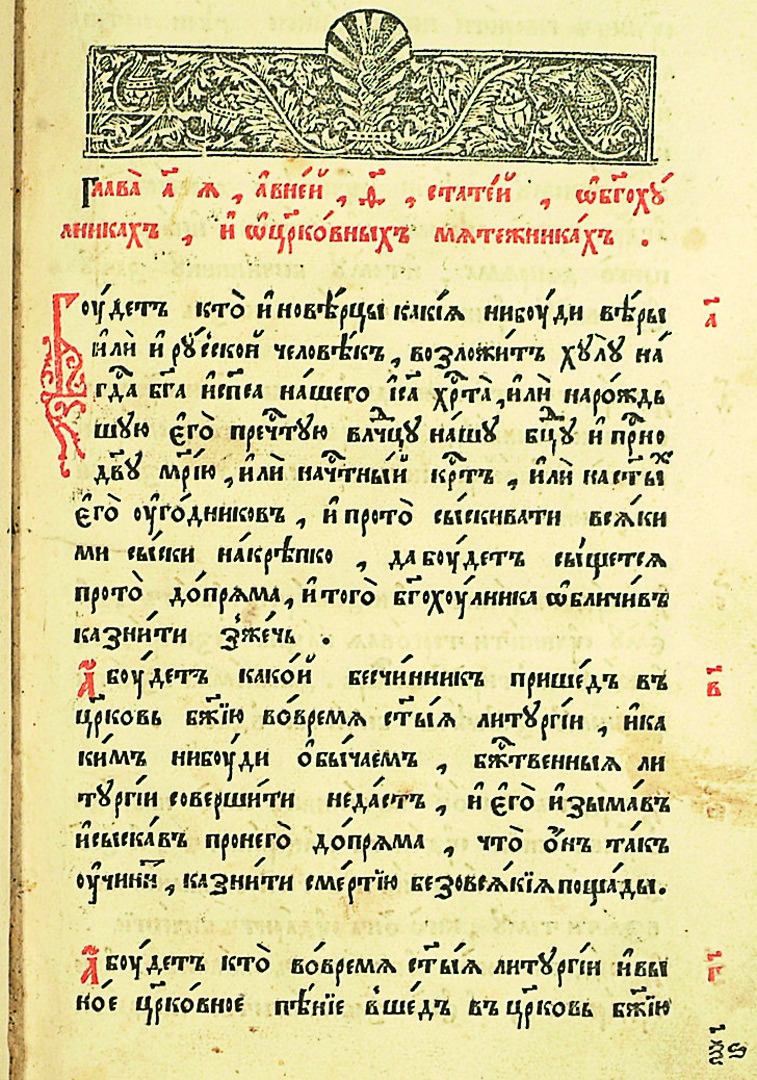 Глава̀ а҃ я , а҆вне́й , ѳ҃ , стате́й , ѡ҆бг҃охꙋ́
лникахъ , и҆ ѡ҆цр҃ко́вныхъ мѧте́жника́хъ .
Бꙋ́детъ кто̀ и҆новѣ́рцы какі́ѧ нибꙋ́ди вѣ́ры
и҆лѝ и҆ рꙋ́сской человѣ́къ , возложи́тъ хꙋлꙋ̀ на́
гдⷭ҇а бг҃а и҆ сп҃са на́шего і҆с҃а хрⷭ҇та̀ , и҆лѝ наро́ждь
шꙋю є҆гѡ̀ пречⷭ҇тꙋю влⷣчцꙋ на́шꙋ бцⷣꙋ и҆ прⷭ҇но
дв҃ꙋ мр҃і́ю , и҆лѝ начⷭ҇тны́й крⷭ҇тъ , и҆лѝ наст҃ы́хъ
є҆гѡ̀ ᲂу҆го́дниковъ , и҆ прото̀ сы́скивати всѧ́ки
ми сы́ски на́крѣпко , да бꙋ́детъ сы́щетсѧ
прото̀ до́прѧма , и҆ того̀ бг҃охꙋ́лника ѡ҆бличи́въ
казни́ти зже́чь .
А҆ бꙋ́детъ како́й бесчи́нникъ прише́дъ въ
цр҃ковь бж҃їю во́времѧ ст҃ы́ѧ литꙋргі́и , и҆ ка
ки́мъ нибꙋ́ди ѻ҆бы́чаемъ , бжⷭ҇твенныѧ ли
тꙋргі́и соверши́ти неда́стъ , и҆ є҆гѡ̀ и҆зыма́въ
и҆ сыска́въ пронего̀ до́прѧма , что̀ ѻ҆́нъ та́къ
ᲂу҆чини́тъ , казни́ти сме́ртїю безовсѧ́кїѧ поща́ды .
А҆ бꙋ́детъ кто̀ во́времѧ ст҃ы́ѧ литꙋргі́и и҆ вы
но́е цр҃ко́вное пѣ́нїе вше́дъ въ цр҃ковь бж҃їю
а҃
в҃
г҃